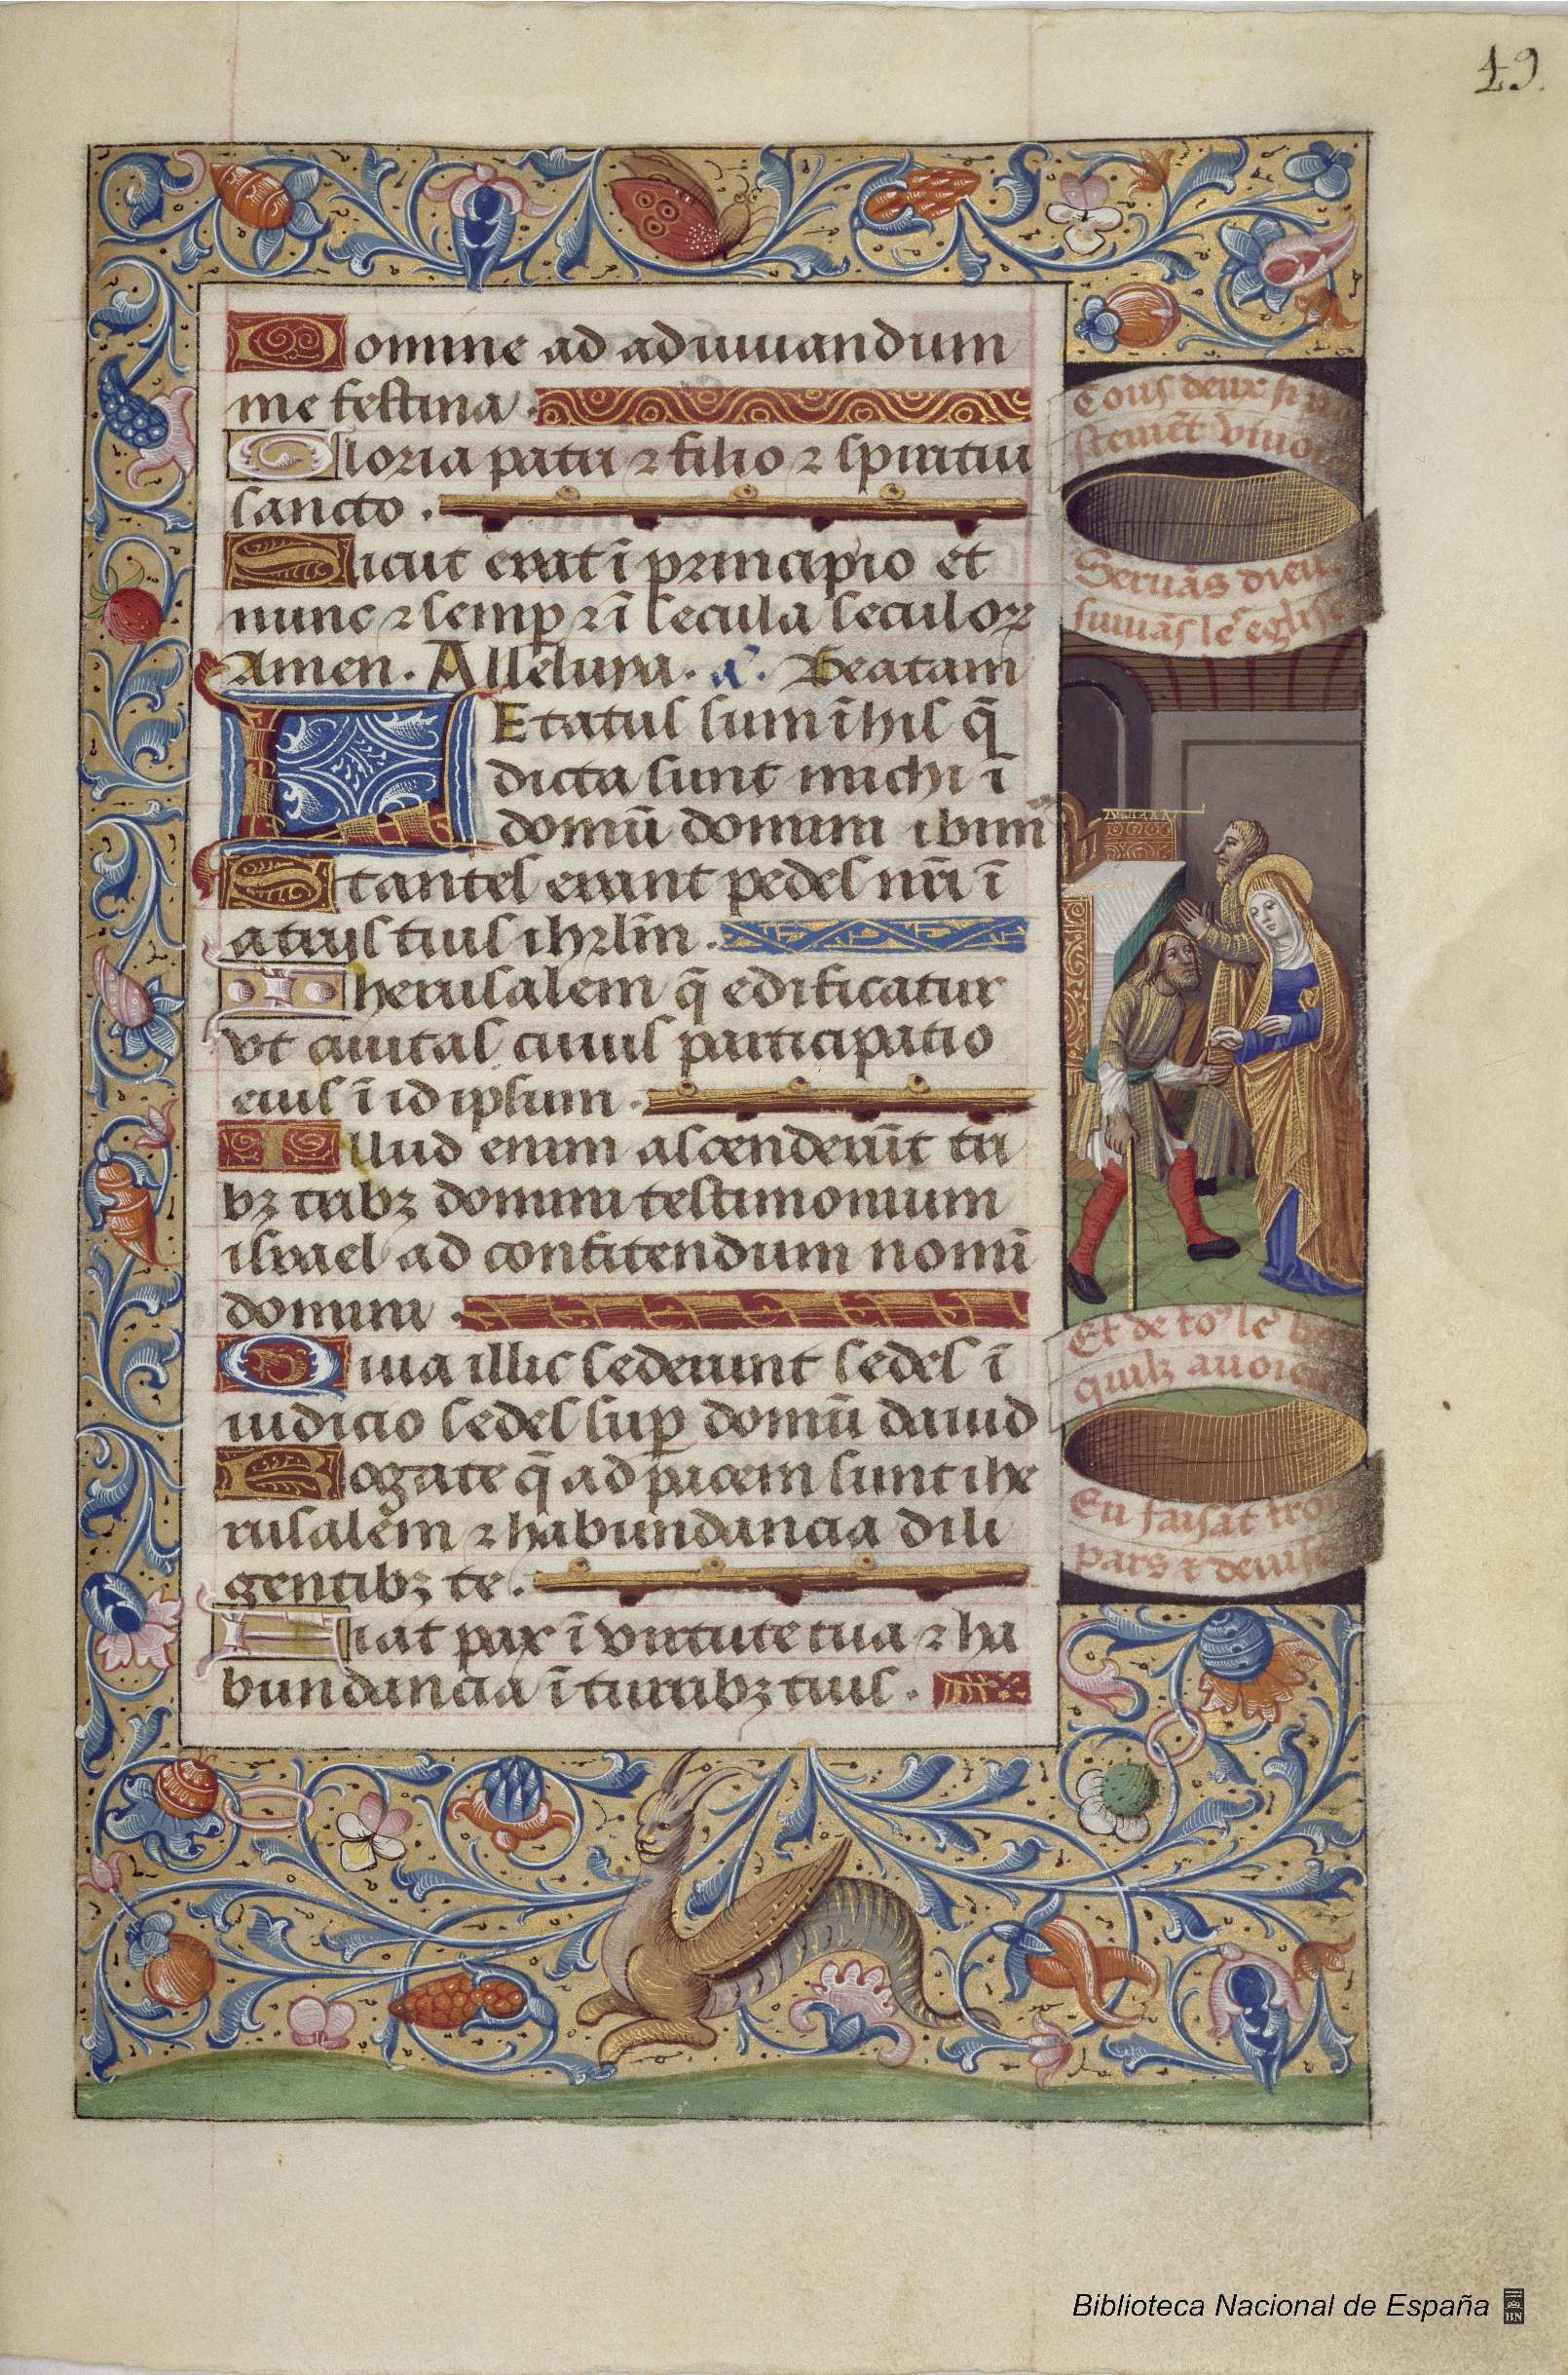 49.
Domine ad adiuuandum
me festina.
Gloria patri ⁊ filio ⁊ spiritui
sancto.
Sicut erat ī principio et
nunc ⁊ semꝑ ⁊ ī secula seculoꝝ
Amen. Alleluya. a͂. Beatam
LEtatus sum ī his q̄
dicta sunt michi ī
domū domini ibim᷒
Stantes erant pedes nr̄i ī
atriis tuis ihrlm̄.
Iherusalem q̄ edificatur
vt ciuitas cuius participatio
eius ī id ipsum.
Illud enim ascenderūt tri
bꝫ tribꝫ domini testimonium
israel ad confitendum nomī
domini.
Quia illic sederunt sedes ī
iudicio sedes suꝑ domū dauid
Rogate q̄ ad pacem sunt ihe
rusalem ⁊ habundancia dili
gentibꝫ te.
Fiat pax ī virtute tua ⁊ ha
bundancia ī turribꝫ tuis.
Tous deux si
Seruās dieu
suiuās le eglise
Et de to᷒ le
quilz auoien
En faisāt
pars ⁊
Biblioteca Nacional de España
BN